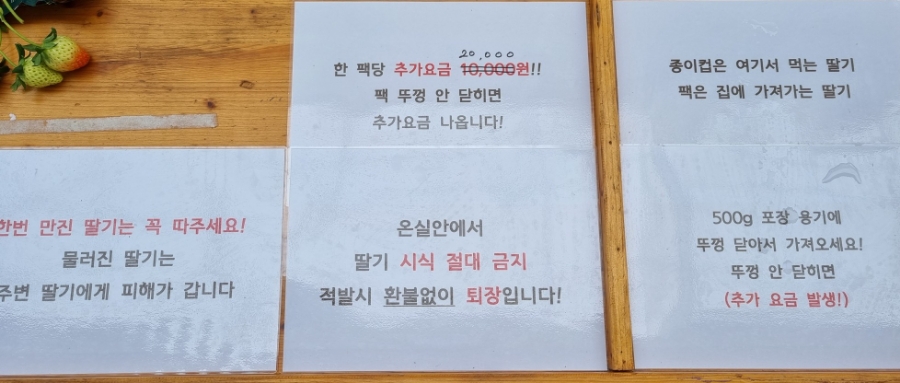 20,000
한 팩당 추가요금 10,000원!!
팩 뚜껑 안 닫히면
추가요금 나옵니다!
종이컵은 여기서 먹는 딸기
팩은 집에 가져가는 딸기
한번 만진 딸기는 꼭 따주세요!
물러진 딸기는
주변 딸기에게 피해가 갑니다
온실안에서
딸기 시식 절대 금지
적발시 환불없이 퇴장입니다!
500g 포장 용기에
뚜껑 닫아서 가져오세요!
뚜껑 안 닫히면
(추가 요금 발생!)